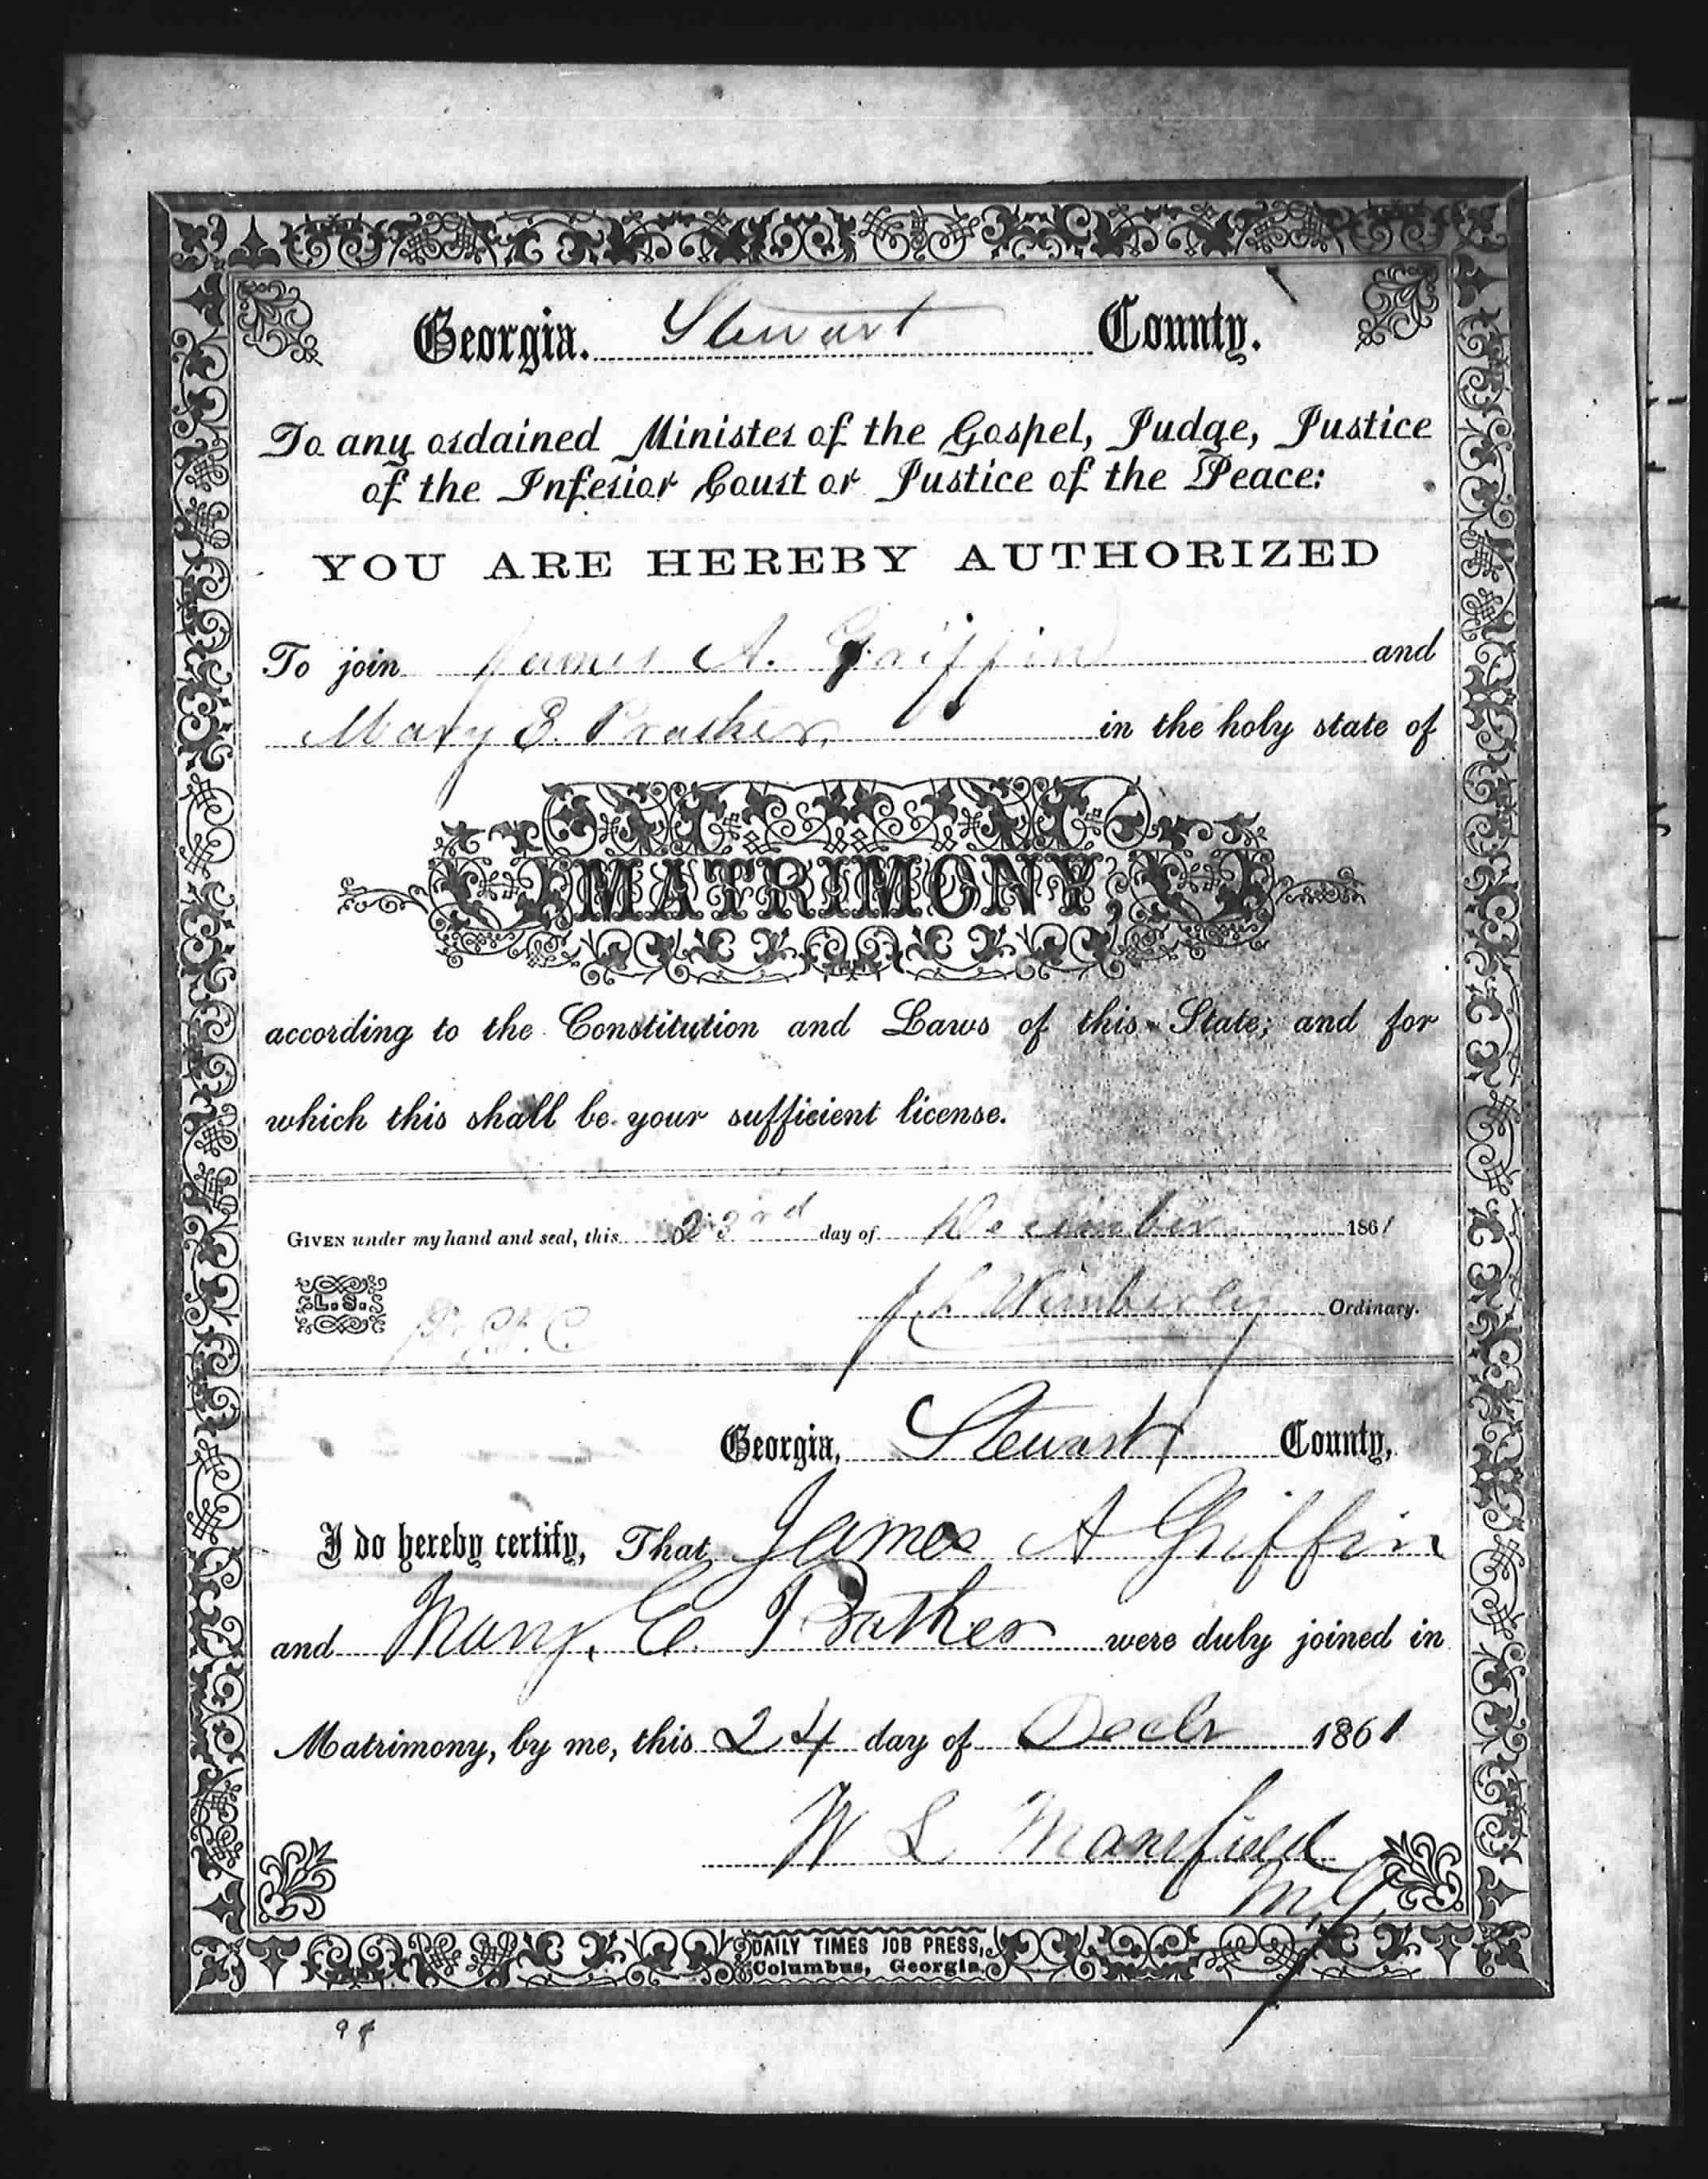 Georgia. Stewart County.
To any ordained Minister of the Gospel, Judge, Justice
of the Inferior Court or Justice of the Peace:
YOU ARE HEREBY AUTHORIZED
To join James A. Griffin and
Mary E. Prather, in the holy state of
MATRIMONY,
according to the Constitution and Laws of this State; and for
which this shall be your sufficient license.
GIVEN under my hand and seal, this 23rd day of December 1861
L. S. J. L. Wimberly Ordinary.
Georgia, Stewart County,
I do hereby certify, That James A Griffin
and Mary. E. Prather were duly joined in
Matrimony, by me, this 24 day of Decbr 1861
W L Mansfield
M. G.
DAILY TIMES JOB PRESS,
Columbus, Georgia.